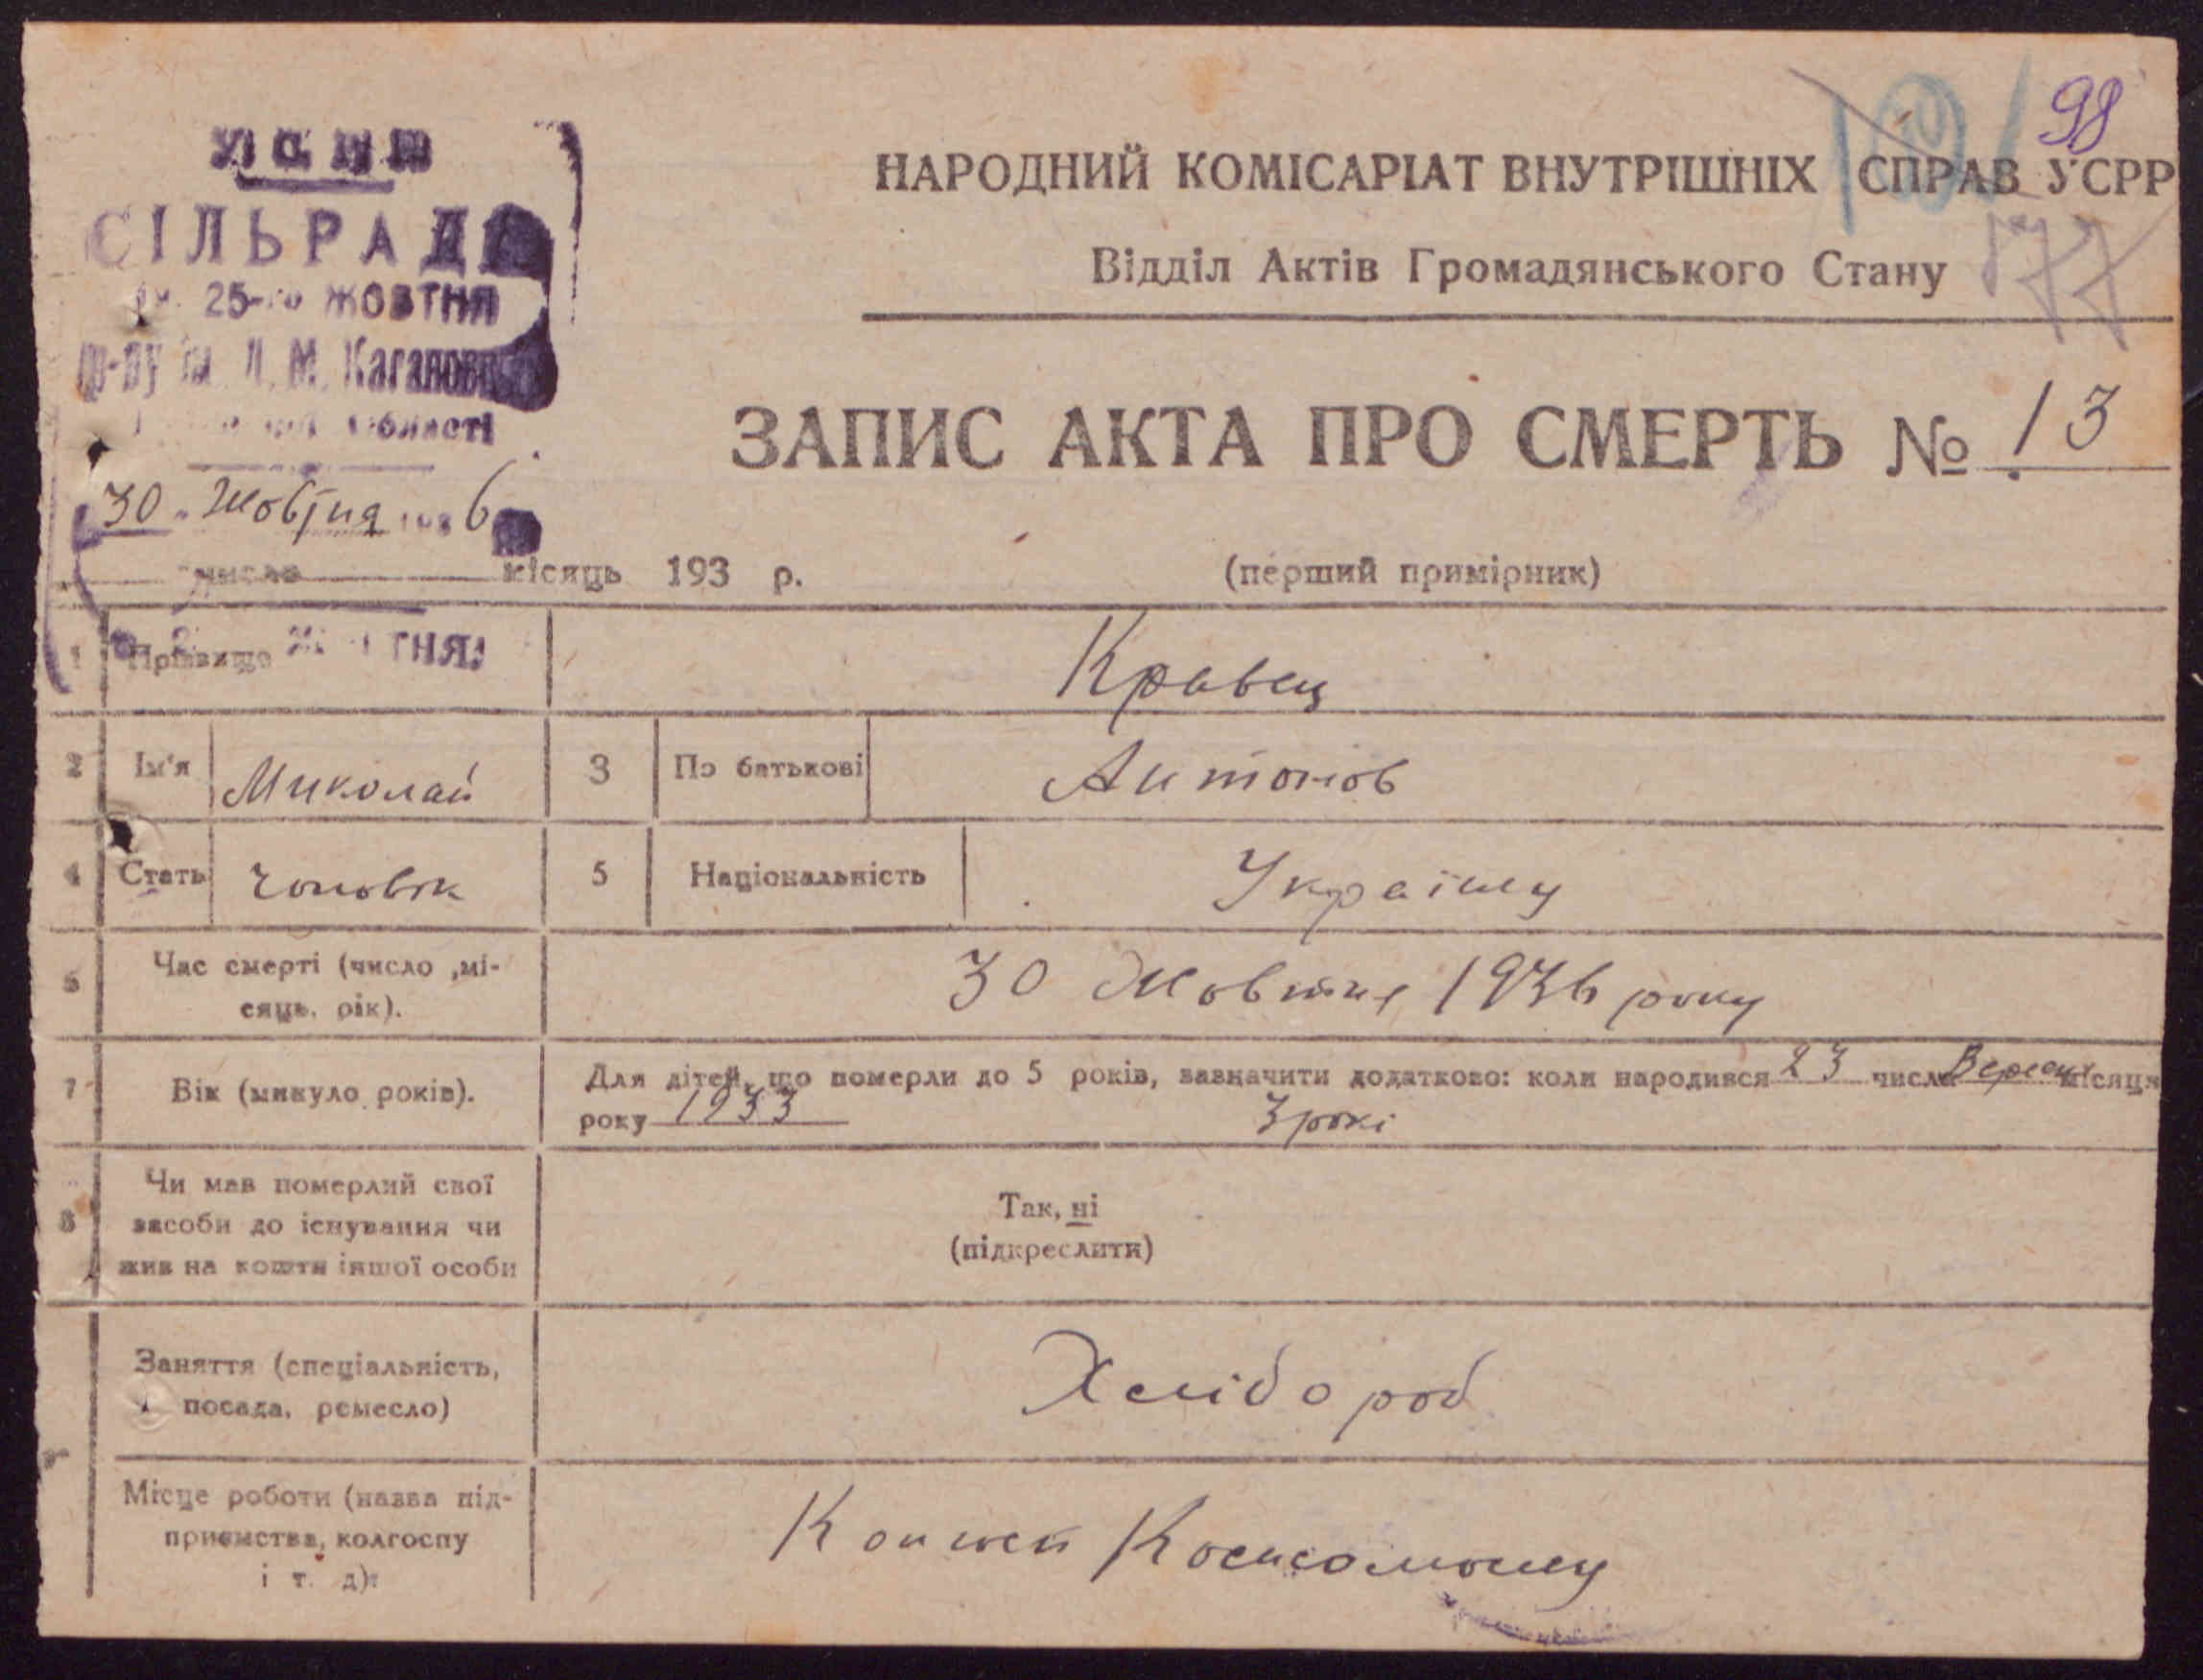 98
НАРОДНИЙ КОМІСАРІАТ ВНУТРІШНІХ СПРАВ УСРР
Відділ Актів Громадянського Стану
77
УСРР
СІЛЬРАДА
ім. 25-го ЖОВТНЯ
р-ну ім. Л. М. Каганович
області
30 Жовтня 193 6
ЗАПИС АКТА ПРО СМЕРТЬ № 13
число місяць 193 р. (перший примірник)
1 Прізвище Кравец
2 Ім'я Миколай 3 По батькові Антонов
4 Стать Чоловік 5 Національність Україну
6 Час смерті (число ,мі-
сяць, рік).
30 Жовтня 1936 року
7 Вік (минуло років).
Для дітей, що померли до 5 років, зазначити додатково: коли народився 23 числа Вересня місяця
року 1933 3 рокі
8 Чи мав померлий свої
засоби до існування чи
жив на кошти іншої особи
Так, ні
(підкреслити)
Заняття (спеціальність,
посада, ремесло)
Хлібороб
Місце роботи (назва під-
приємства, колгоспу
і т. д):